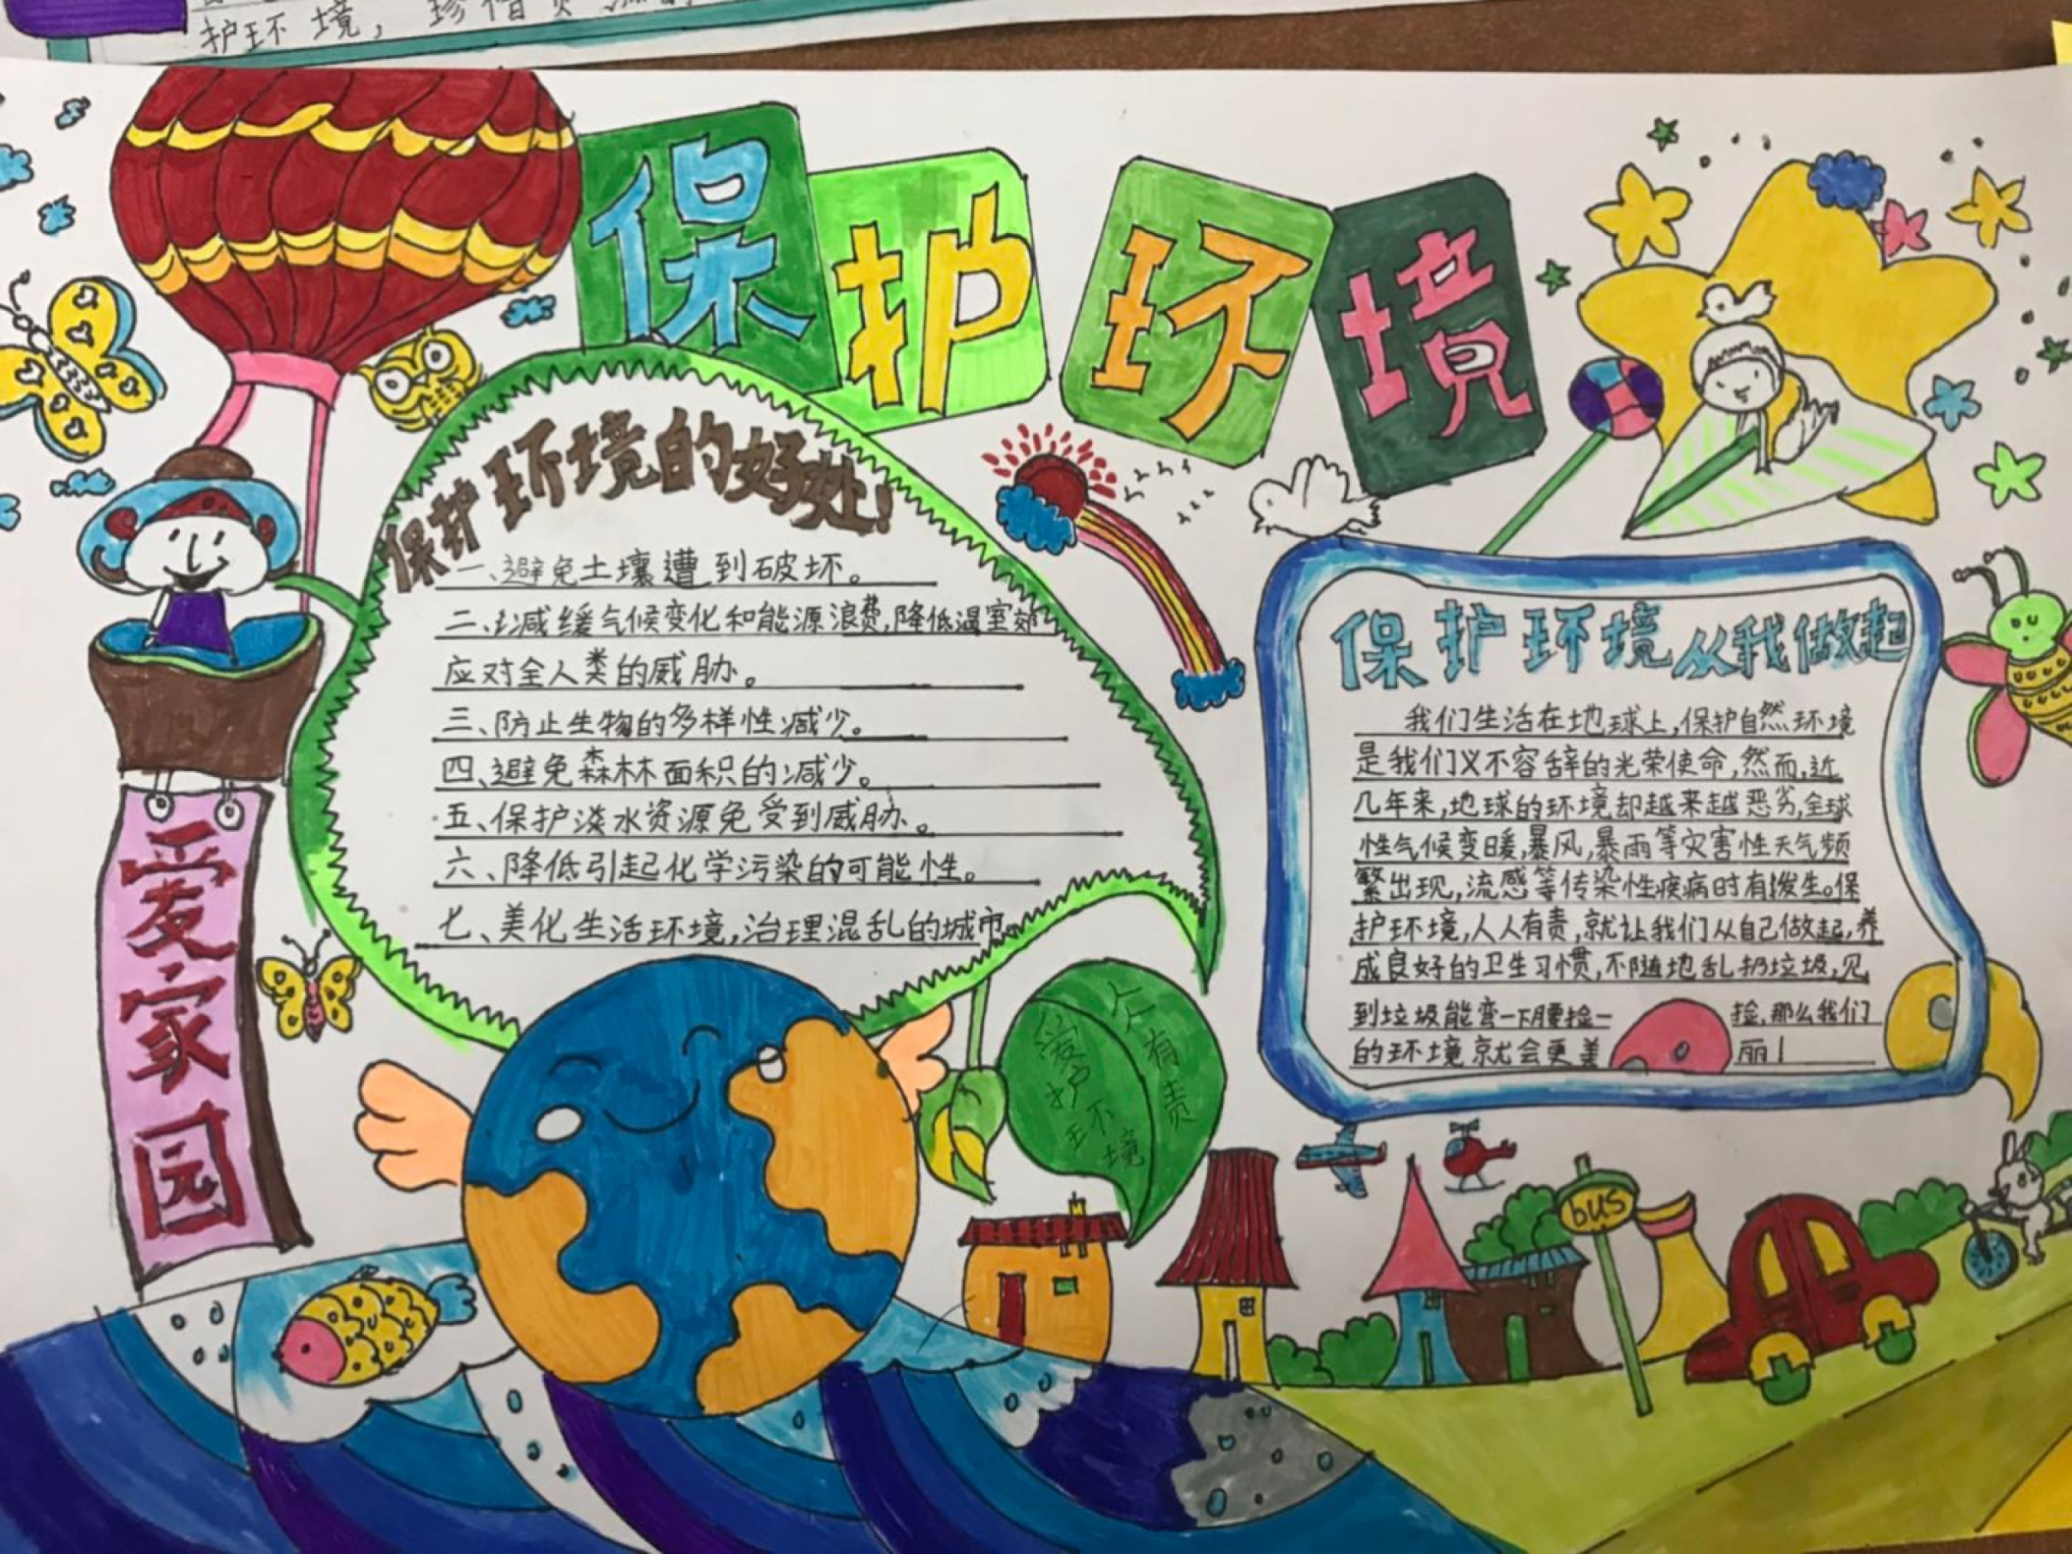 护环境，珍惜资源
保护环境
保护环境的好处！
一、避免土壤遭到破坏。
二、减缓气候变化和能源浪费，降低温室效
应对全人类的威胁。
三、防止生物的多样性减少。
四、避免森林面积的减少。
五、保护淡水资源免受到威胁。
六、降低引起化学污染的可能性。
七、美化生活环境，治理混乱的城市。
爱家园
爱护环境
人有责
保护环境从我做起
我们生活在地球上，保护自然环境
是我们义不容辞的光荣使命，然而，近
几年来，地球的环境却越来越恶劣，全球
性气候变暖，暴风，暴雨等灾害性天气频
繁出现，流感等传染性疾病时有拨生。保
护环境，人人有责，就让我们从自己做起，养
成良好的卫生习惯，不随地乱扔垃圾，见
到垃圾能弯一下腰捡一捡，那么我们
的环境就会更美丽！
bus